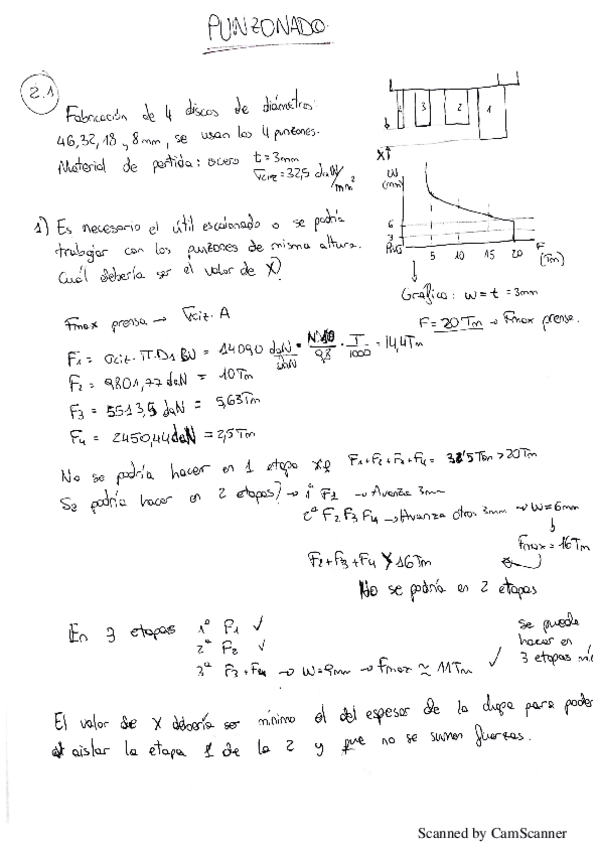 PUNZONADO
2.1
Fabricación de 4 discos de diámetros:
46, 32, 18 y 8 mm, se usan los 4 punzones.
Material de partida: acero t = 3mm
σciz = 32,5 daN/mm²
4 3 2 1
X↑
W
(mm)
6
3
5 10 15 20 F
(Tm)
Gráfico: w = t = 3mm
F = 20 Tm → Fmax prensa.
1) Es necesario el útil escalonado o se podría
trabajar con los punzones de misma altura.
Cuál debería ser el valor de X?
Fmax prensa → σciz. A
F1 = σciz. π. D1 = 14090 daN · N10/daN 9,8 · T/1000 = 14,4 Tm
F2 = 9801,77 daN = 10 Tm
F3 = 5513,5 daN = 5,63 Tm
F4 = 2450,44 daN = 2,5 Tm
No se podría hacer en 1 etapa xq F1+F2+F3+F4 = 32'5 Tm > 20 Tm
Se podría hacer en 2 etapas? → 1ª F1 → Avanza 3mm
2ª F2 F3 F4 → Avanza otros 3mm → W = 6mm
Fmax = 16 Tm
F2+F3+F4 > 16 Tm
No se podría en 2 etapas
En 3 etapas 1ª F1 ✓
2ª F2 ✓
3ª F3+F4 → W = 9mm → Fmax ≃ 11 Tm ✓
Se puede
hacer en
3 etapas
El valor de X debería ser mínimo el del espesor de la chapa para poder
aislar la etapa 1 de la 2 y que no se sumen fuerzas.
Scanned by CamScanner